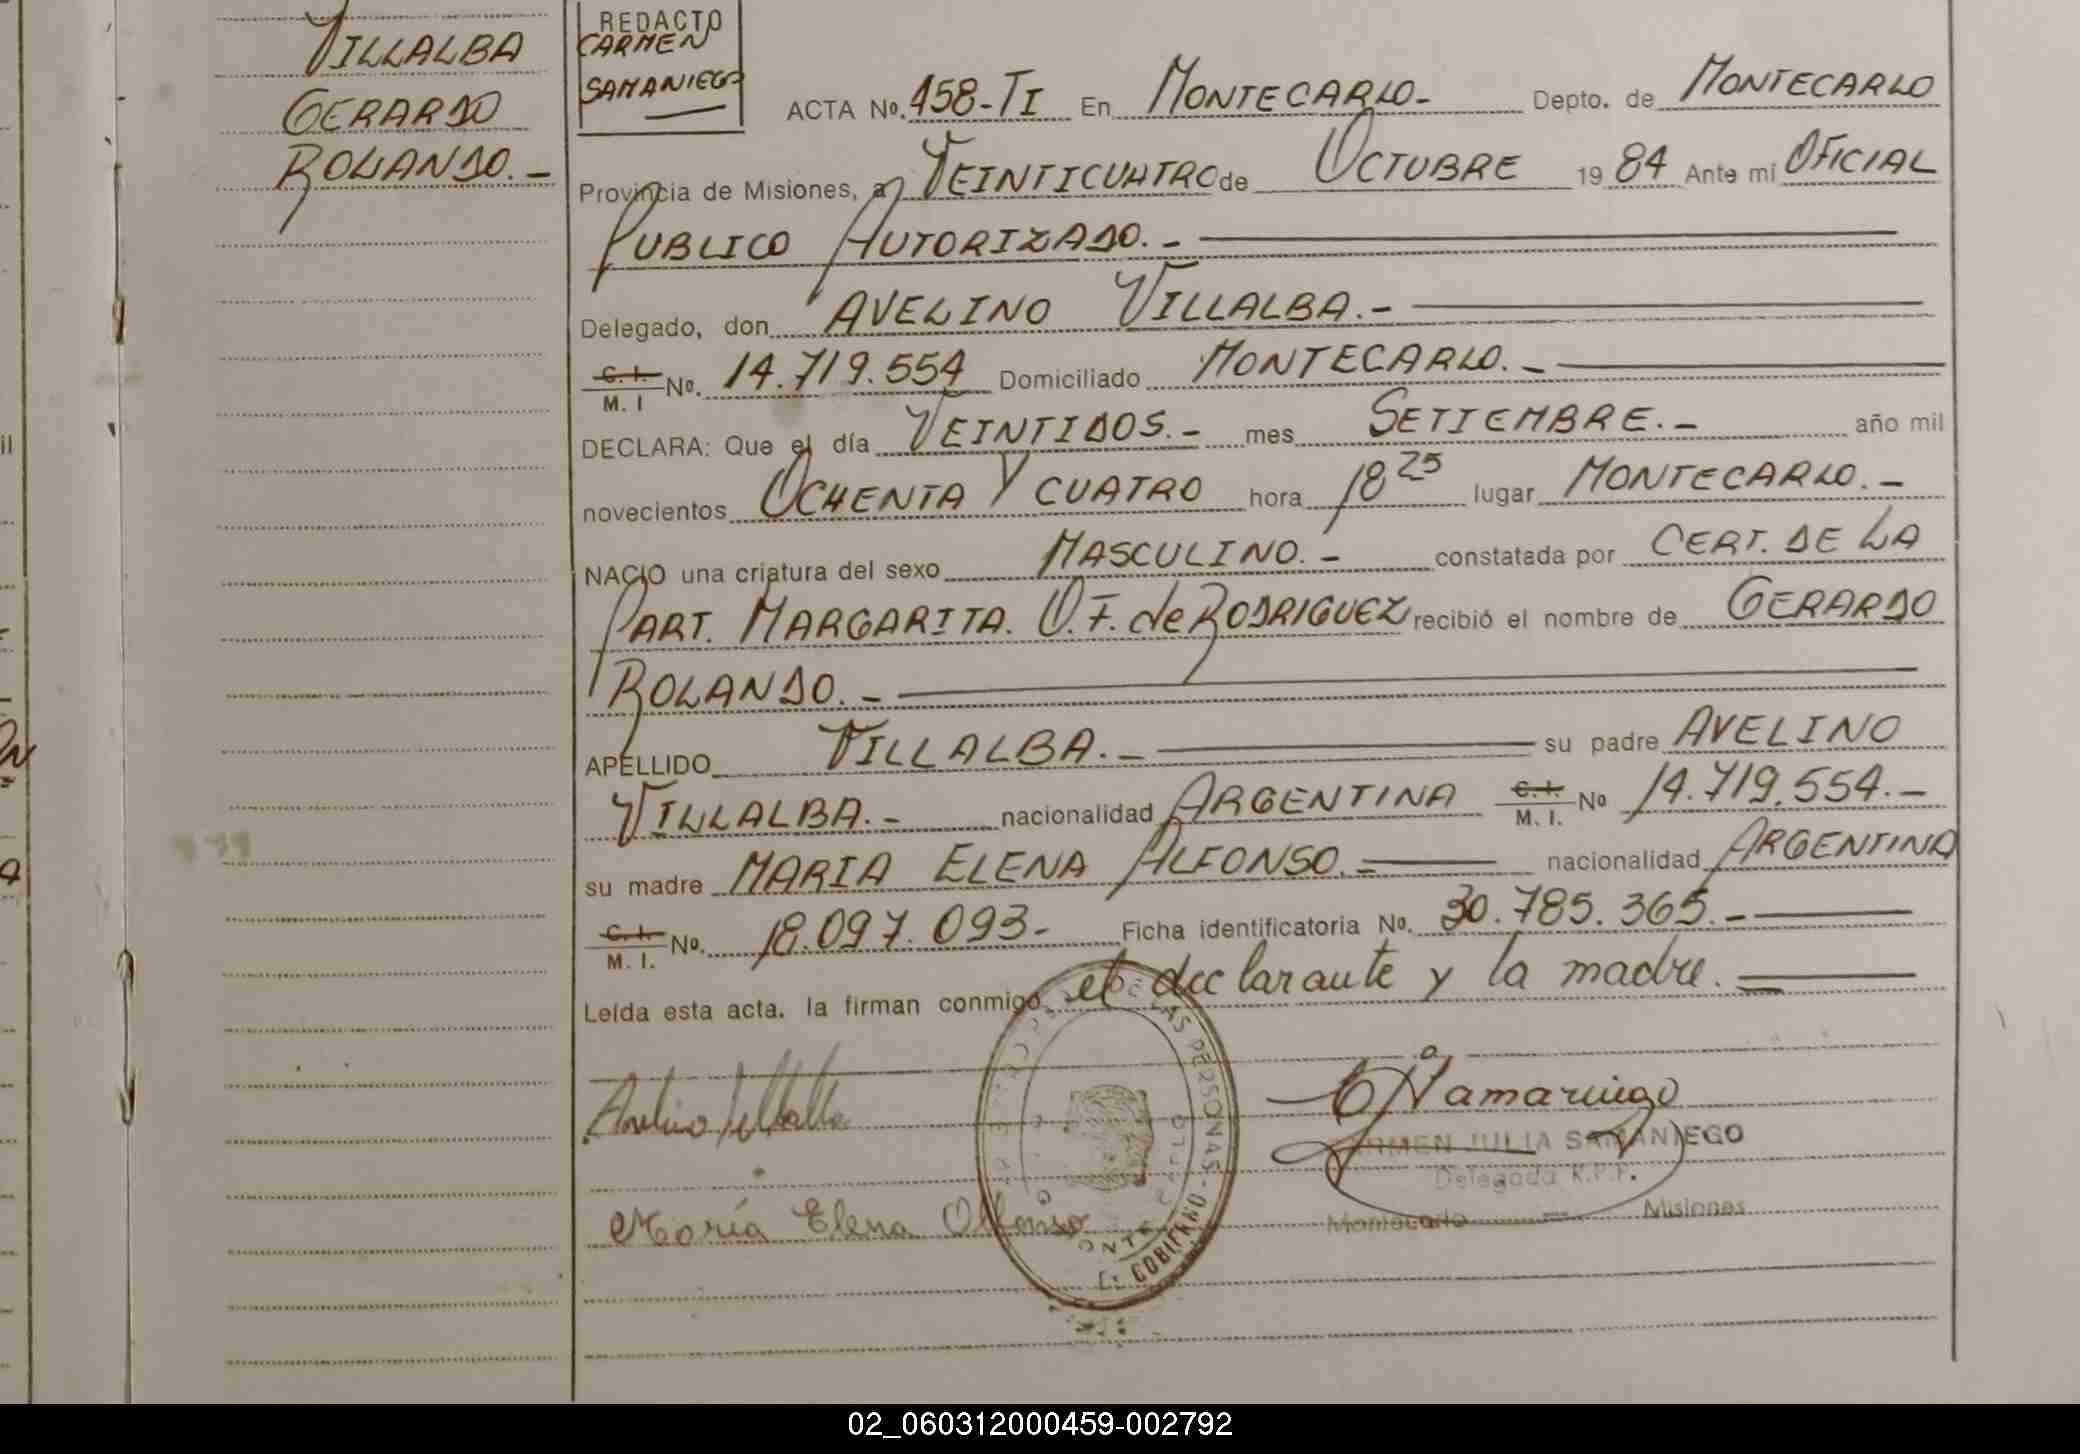 VILLALBA
GERARDO
ROLANDO.-
REDACTO
CARMEN
SAMANIEGO
ACTA No. 458-TI En MONTECARLO- Depto. de MONTECARLO
Provincia de Misiones, a VEINTICUATRO de OCTUBRE 19 84 Ante mi OFICIAL
PUBLICO AUTORIZADO.-
Delegado, don AVELINO VILLALBA.-
C. I. / M. I No. 14.719.554 Domiciliado MONTECARLO.-
DECLARA: Que el día VEINTIDOS.- mes SETIEMBRE.- año mil
novecientos OCHENTA Y CUATRO hora 18 25 lugar MONTECARLO.-
NACIO una criatura del sexo MASCULINO.- constatada por CERT. DE LA
PART. MARGARITA. O.F. de RODRIGUEZ recibió el nombre de GERARDO
ROLANDO.-
APELLIDO VILLALBA.- su padre AVELINO
VILLALBA.- nacionalidad ARGENTINA C. I. / M. I. No 14.719.554.-
su madre MARIA ELENA ALFONSO.= nacionalidad ARGENTINA
C. I. / M. I. No. 18.097.093- Ficha identificatoria No. 30.785.365.-
Leída esta acta. la firman conmigo el declarante y la madre.=
Avelino Villalba
CARMEN JULIA SAMANIEGO
Delegada R.P.P.
María Elena Alfonso
Montecarlo - Misiones
DE LAS PERSONAS - GOBIERNO
02_060312000459-002792